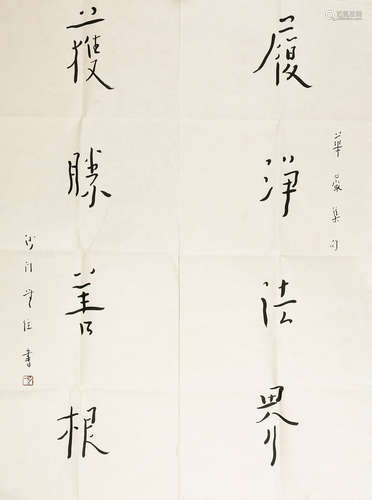 履淨法界
華嚴集句
獲勝善根
沙门
書